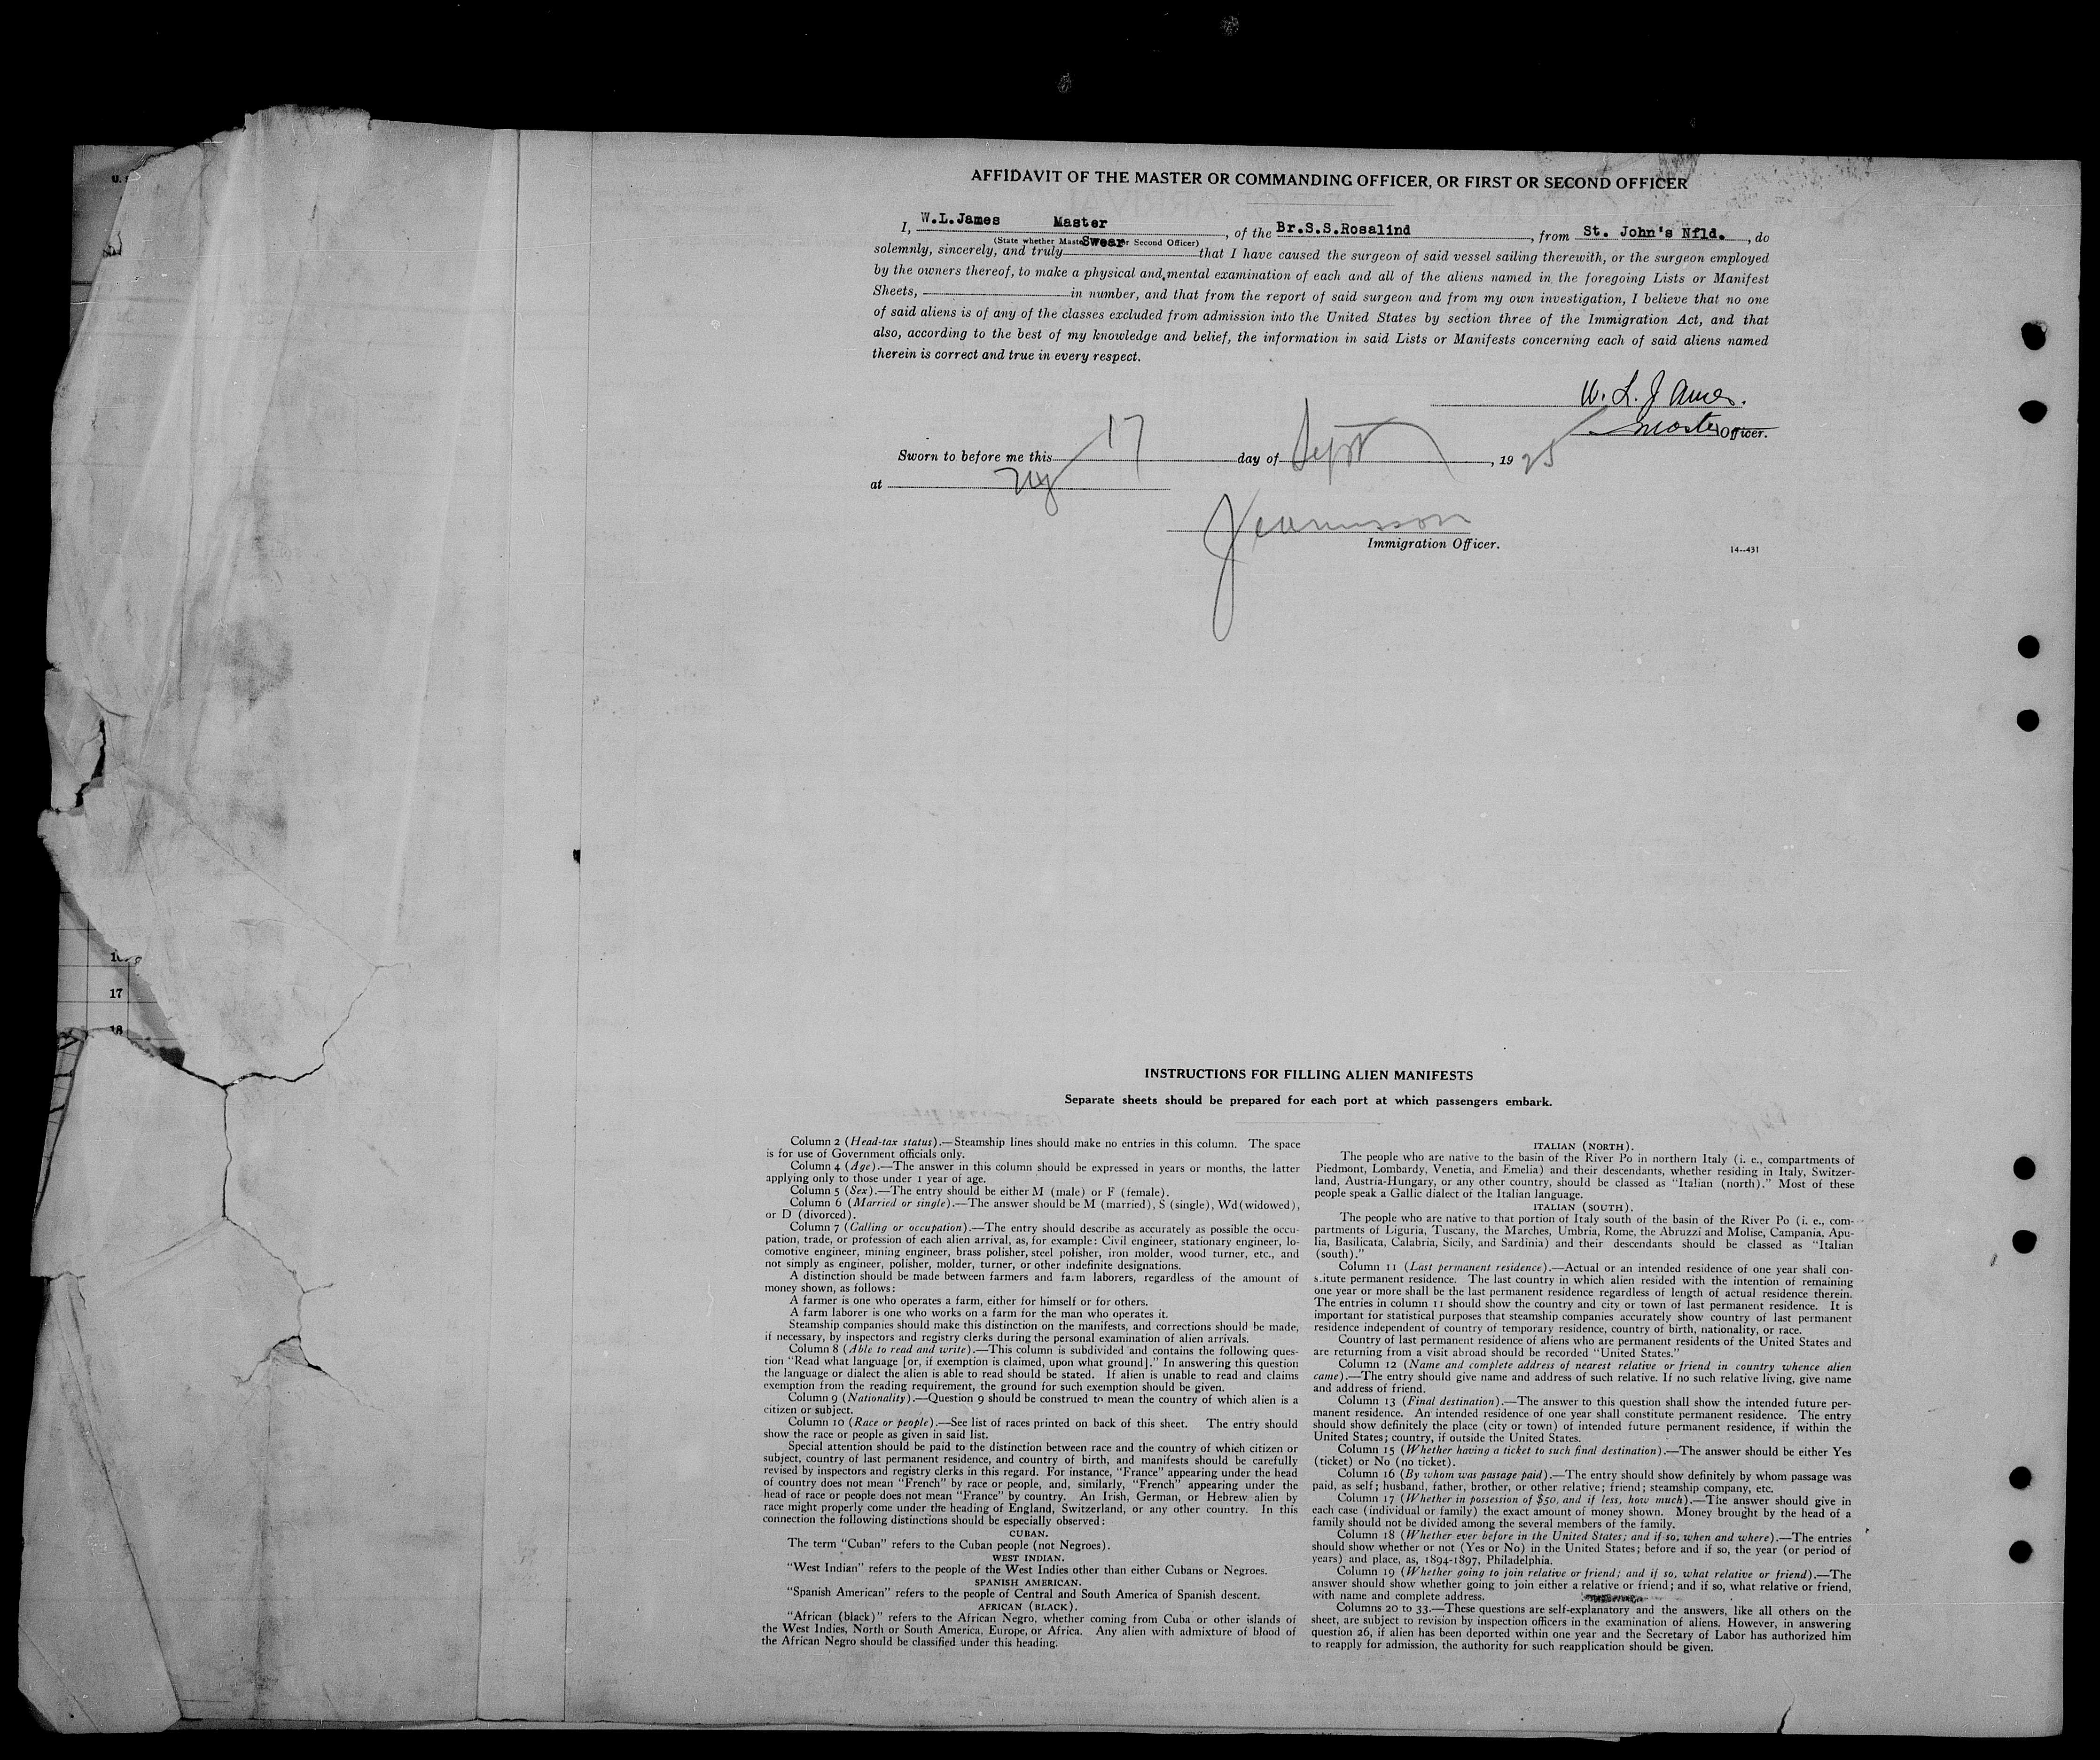 U. S
AFFIDAVIT OF THE MASTER OR COMMANDING OFFICER, OR FIRST OR SECOND OFFICER
I, W.L.James Master, of the Br.S.S.Rosalind, from St. John's Nfld., do
(State whether Maste Swear r Second Officer)
solemnly, sincerely, and truly that I have caused the surgeon of said vessel sailing therewith, or the surgeon employed
by the owners thereof, to make a physical and mental examination of each and all of the aliens named in the foregoing Lists or Manifest
Sheets, in number, and that from the report of said surgeon and from my own investigation, I believe that no one
of said aliens is of any of the classes excluded from admission into the United States by section three of the Immigration Act, and that
also, according to the best of my knowledge and belief, the information in said Lists or Manifests concerning each of said aliens named
therein is correct and true in every respect.
W. L. James.
Master Officer.
Sworn to before me this 17 day of Sept, 1925
at NY
Immigration Officer.
14-431
17
18
INSTRUCTIONS FOR FILLING ALIEN MANIFESTS
Separate sheets should be prepared for each port at which passengers embark.
Column 2 (Head-tax status).—Steamship lines should make no entries in this column. The space
is for use of Government officials only.
Column 4 (Age).—The answer in this column should be expressed in years or months, the latter
applying only to those under 1 year of age.
Column 5 (Sex).—The entry should be either M (male) or F (female).
Column 6 (Married or single).—The answer should be M (married), S (single), Wd (widowed),
or D (divorced).
Column 7 (Calling or occupation).—The entry should describe as accurately as possible the occu-
pation, trade, or profession of each alien arrival, as, for example: Civil engineer, stationary engineer, lo-
comotive engineer, mining engineer, brass polisher, steel polisher, iron molder, wood turner, etc., and
not simply as engineer, polisher, molder, turner, or other indefinite designations.
A distinction should be made between farmers and farm laborers, regardless of the amount of
money shown, as follows:
A farmer is one who operates a farm, either for himself or for others.
A farm laborer is one who works on a farm for the man who operates it.
Steamship companies should make this distinction on the manifests, and corrections should be made,
if necessary, by inspectors and registry clerks during the personal examination of alien arrivals.
Column 8 (Able to read and write).—This column is subdivided and contains the following ques-
tion "Read what language [or, if exemption is claimed, upon what ground]." In answering this question
the language or dialect the alien is able to read should be stated. If alien is unable to read and claims
exemption from the reading requirement, the ground for such exemption should be given.
Column 9 (Nationality).—Question 9 should be construed to mean the country of which alien is a
citizen or subject.
Column 10 (Race or people).—See list of races printed on back of this sheet. The entry should
show the race or people as given in said list.
Special attention should be paid to the distinction between race and the country of which citizen or
subject, country of last permanent residence, and country of birth, and manifests should be carefully
revised by inspectors and registry clerks in this regard. For instance, "France" appearing under the head
of country does not mean "French" by race or people, and, similarly, "French" appearing under the
head of race or people does not mean "France" by country. An Irish, German, or Hebrew alien by
race might properly come under the heading of England, Switzerland, or any other country. In this
connection the following distinctions should be especially observed:
CUBAN.
The term "Cuban" refers to the Cuban people (not Negroes).
WEST INDIAN.
"West Indian" refers to the people of the West Indies other than either Cubans or Negroes.
SPANISH AMERICAN.
"Spanish American" refers to the people of Central and South America of Spanish descent.
AFRICAN (BLACK).
"African (black)" refers to the African Negro, whether coming from Cuba or other islands of
the West Indies, North or South America, Europe, or Africa. Any alien with admixture of blood of
the African Negro should be classified under this heading.
ITALIAN (NORTH).
The people who are native to the basin of the River Po in northern Italy (i. e., compartments of
Piedmont, Lombardy, Venetia, and Emelia) and their descendants, whether residing in Italy, Switzer-
land, Austria-Hungary, or any other country, should be classed as "Italian (north)." Most of these
people speak a Gallic dialect of the Italian language.
ITALIAN (SOUTH).
The people who are native to that portion of Italy south of the basin of the River Po (i. e., com-
partments of Liguria, Tuscany, the Marches, Umbria, Rome, the Abruzzi and Molise, Campania, Apu-
lia, Basilicata, Calabria, Sicily, and Sardinia) and their descendants should be classed as "Italian
(south)."
Column 11 (Last permanent residence).—Actual or an intended residence of one year shall con-
stitute permanent residence. The last country in which alien resided with the intention of remaining
one year or more shall be the last permanent residence regardless of length of actual residence therein.
The entries in column 11 should show the country and city or town of last permanent residence. It is
important for statistical purposes that steamship companies accurately show country of last permanent
residence independent of country of temporary residence, country of birth, nationality, or race.
Country of last permanent residence of aliens who are permanent residents of the United States and
are returning from a visit abroad should be recorded "United States."
Column 12 (Name and complete address of nearest relative or friend in country whence alien
came).—The entry should give name and address of such relative. If no such relative living, give name
and address of friend.
Column 13 (Final destination).—The answer to this question shall show the intended future per-
manent residence. An intended residence of one year shall constitute permanent residence. The entry
should show definitely the place (city or town) of intended future permanent residence, if within the
United States; country, if outside the United States.
Column 15 (Whether having a ticket to such final destination).—The answer should be either Yes
(ticket) or No (no ticket).
Column 16 (By whom was passage paid).—The entry should show definitely by whom passage was
paid, as self; husband, father, brother, or other relative; friend; steamship company, etc.
Column 17 (Whether in possession of $50, and if less, how much).—The answer should give in
each case (individual or family) the exact amount of money shown. Money brought by the head of a
family should not be divided among the several members of the family.
Column 18 (Whether ever before in the United States; and if so, when and where).—The entries
should show whether or not (Yes or No) in the United States; before and if so, the year (or period of
years) and place, as, 1894-1897, Philadelphia.
Column 19 (Whether going to join relative or friend; and if so, what relative or friend).—The
answer should show whether going to join either a relative or friend; and if so, what relative or friend,
with name and complete address.
Columns 20 to 33.—These questions are self-explanatory and the answers, like all others on the
sheet, are subject to revision by inspection officers in the examination of aliens. However, in answering
question 26, if alien has been deported within one year and the Secretary of Labor has authorized him
to reapply for admission, the authority for such reapplication should be given.